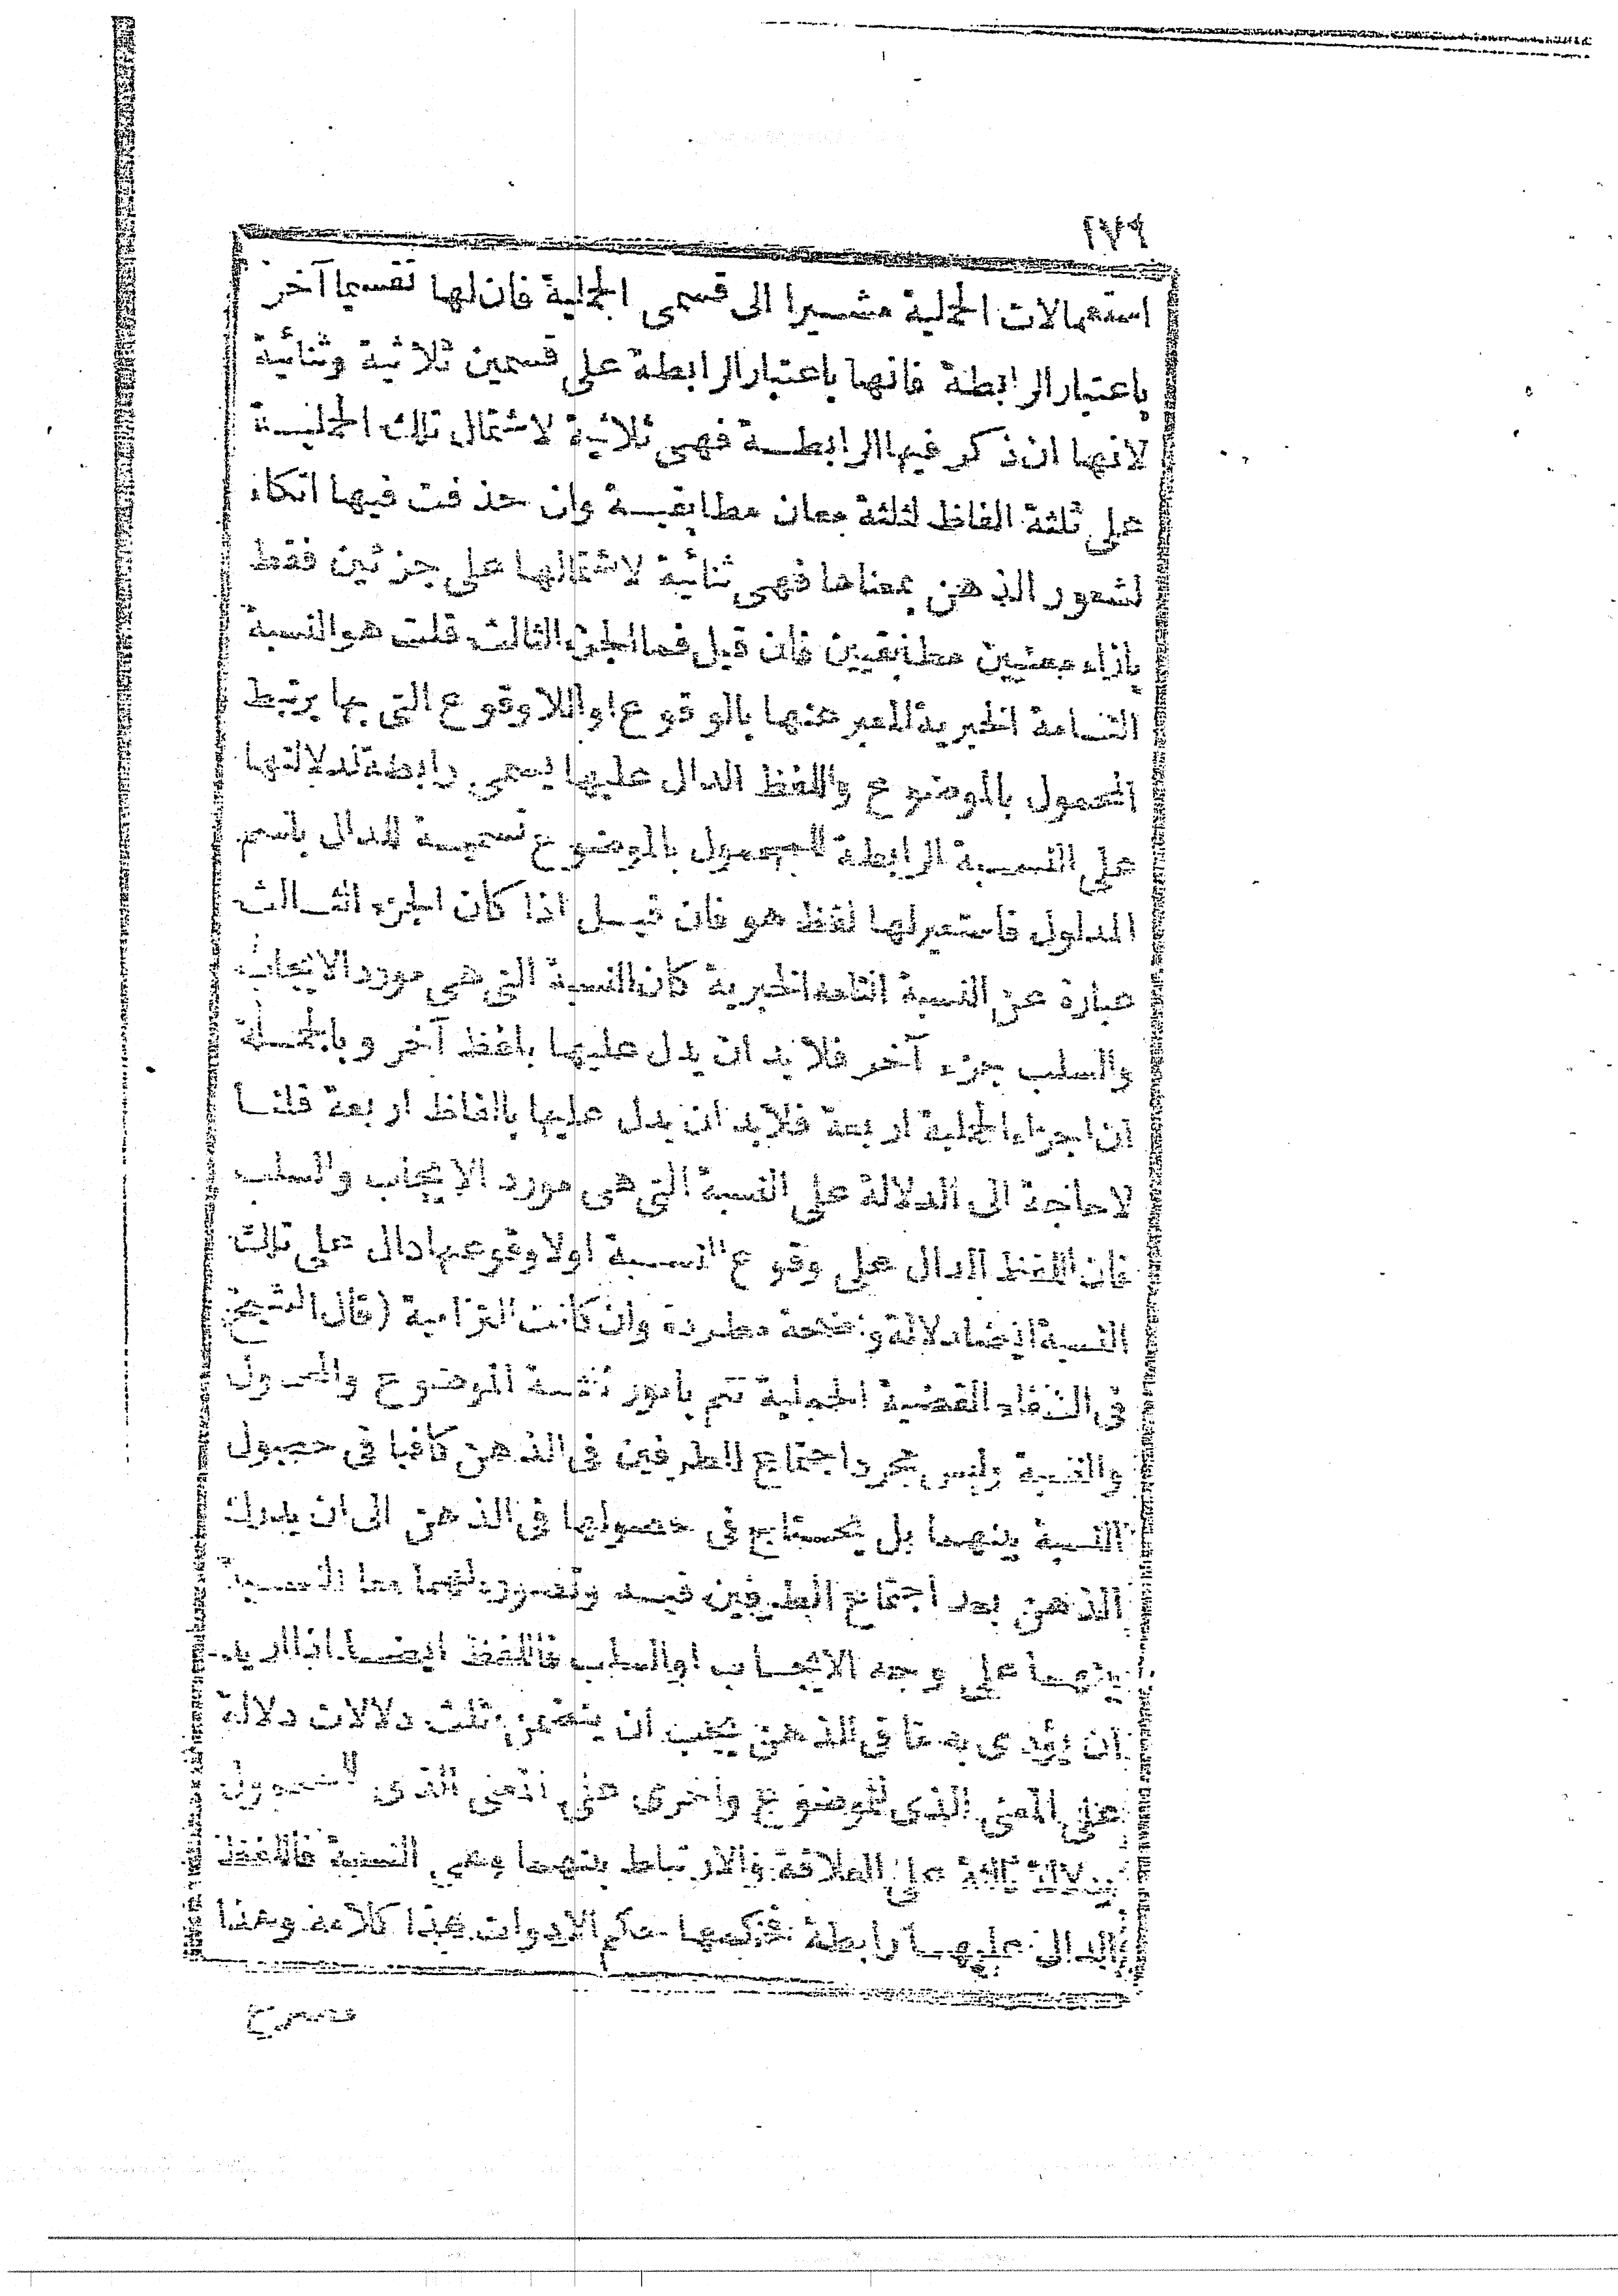 ٢٧٩
استعمالات الحملية مشيرا الى قسمى الحملية فان لها تقسيما آخر
باعتبار الرابطة فانها باعتبار الرابطة على قسمين ثلاثية وثنائية
لانها ان ذكر فيها الرابطة فهى ثلاثية لاشتمال تلك الحملية
على ثلثة الفاظ لثلثة معان مطابقية وان حذفت فيها اتكاء
لشعور الذهن بمعناها فهى ثنائية لاشتمالها على جزئين فقط
بازاء معنيين مطابقيين فان قيل فما الجزء الثالث قلت هو النسبة
التامة الخبرية المعبر عنها بالوقوع او اللاوقوع التى بها يرتبط
المحمول بالموضوع واللفظ الدال عليها يسمى رابطة لدلالتها
على النسبة الرابطة للمحمول بالموضوع تسمية للدال باسم
المدلول فاستعير لها لفظ هو فان قيل اذا كان الجزء الثالث
عبارة عن النسبة التامة الخبرية كان النسبة التى هى مورد الايجاب
والسلب جزء آخر فلابد ان يدل عليها بلفظ آخر وبالجملة
ان اجزاء الحملية اربعة فلابد ان يدل عليها بالفاظ اربعة قلنا
لا حاجة الى الدلالة على النسبة التى هى مورد الايجاب والسلب
فان اللفظ الدال على وقوع النسبة اولا وقوعها دال على تلك
النسبة ايضا دلالة واضحة مطردة وان كانت التزامية (قال الشيخ
فى الشفاء القضية الحملية تتم بامور ثلثة الموضوع والمحمول
والنسبة وليس مجرد اجتماع الطرفين فى الذهن كافيا فى حصول
النسبة بينهما بل يحتاج فى حصولها فى الذهن الى ان يدرك
الذهن بعد اجتماع الطرفين فيه وتصوره لهما معا النسبة
بينهما على وجه الايجاب او السلب فاللفظ ايضا اذا اريد
ان يؤدى به ما فى الذهن يجب ان يتضمن ثلث دلالات دلالة
على المعنى الذى للموضوع واخرى على المعنى الذى للمحمول
ودلالة ثالثة على العلاقة والارتباط بينهما وهى النسبة فاللفظ
الدال عليها رابطة فحكمها حكم الادوات هذا كلامه وهذا